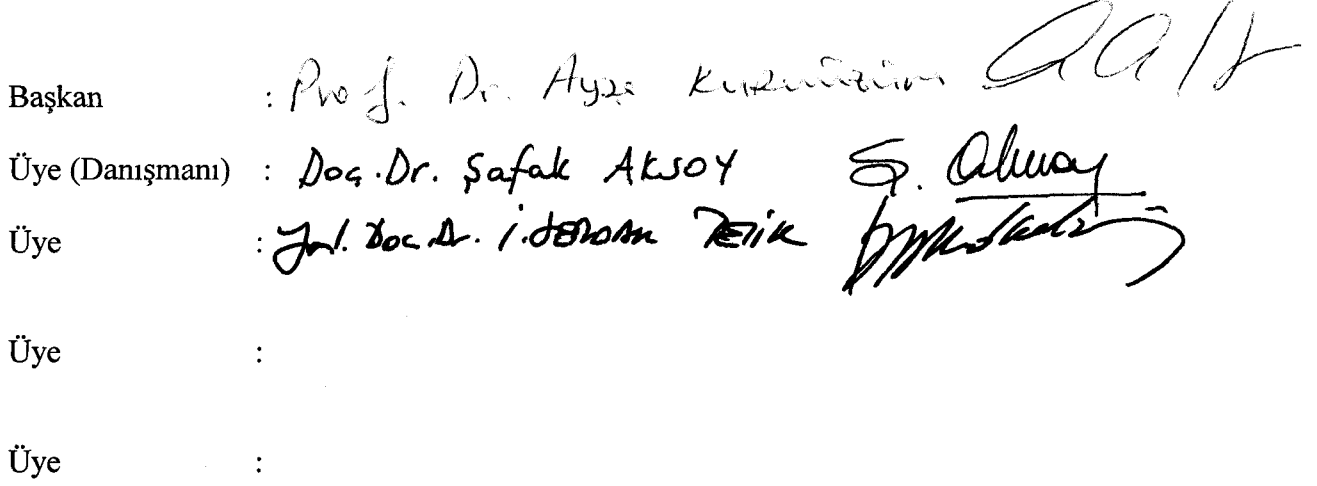 Başkan : Prof. Dr. Ayşe Kuruüzüm
Üye (Danışmanı) : Doç. Dr. Şafak AKSOY Ş. Aksoy
Üye : Yrd. Doç. Dr. İ. SERDAR
Üye :
Üye :